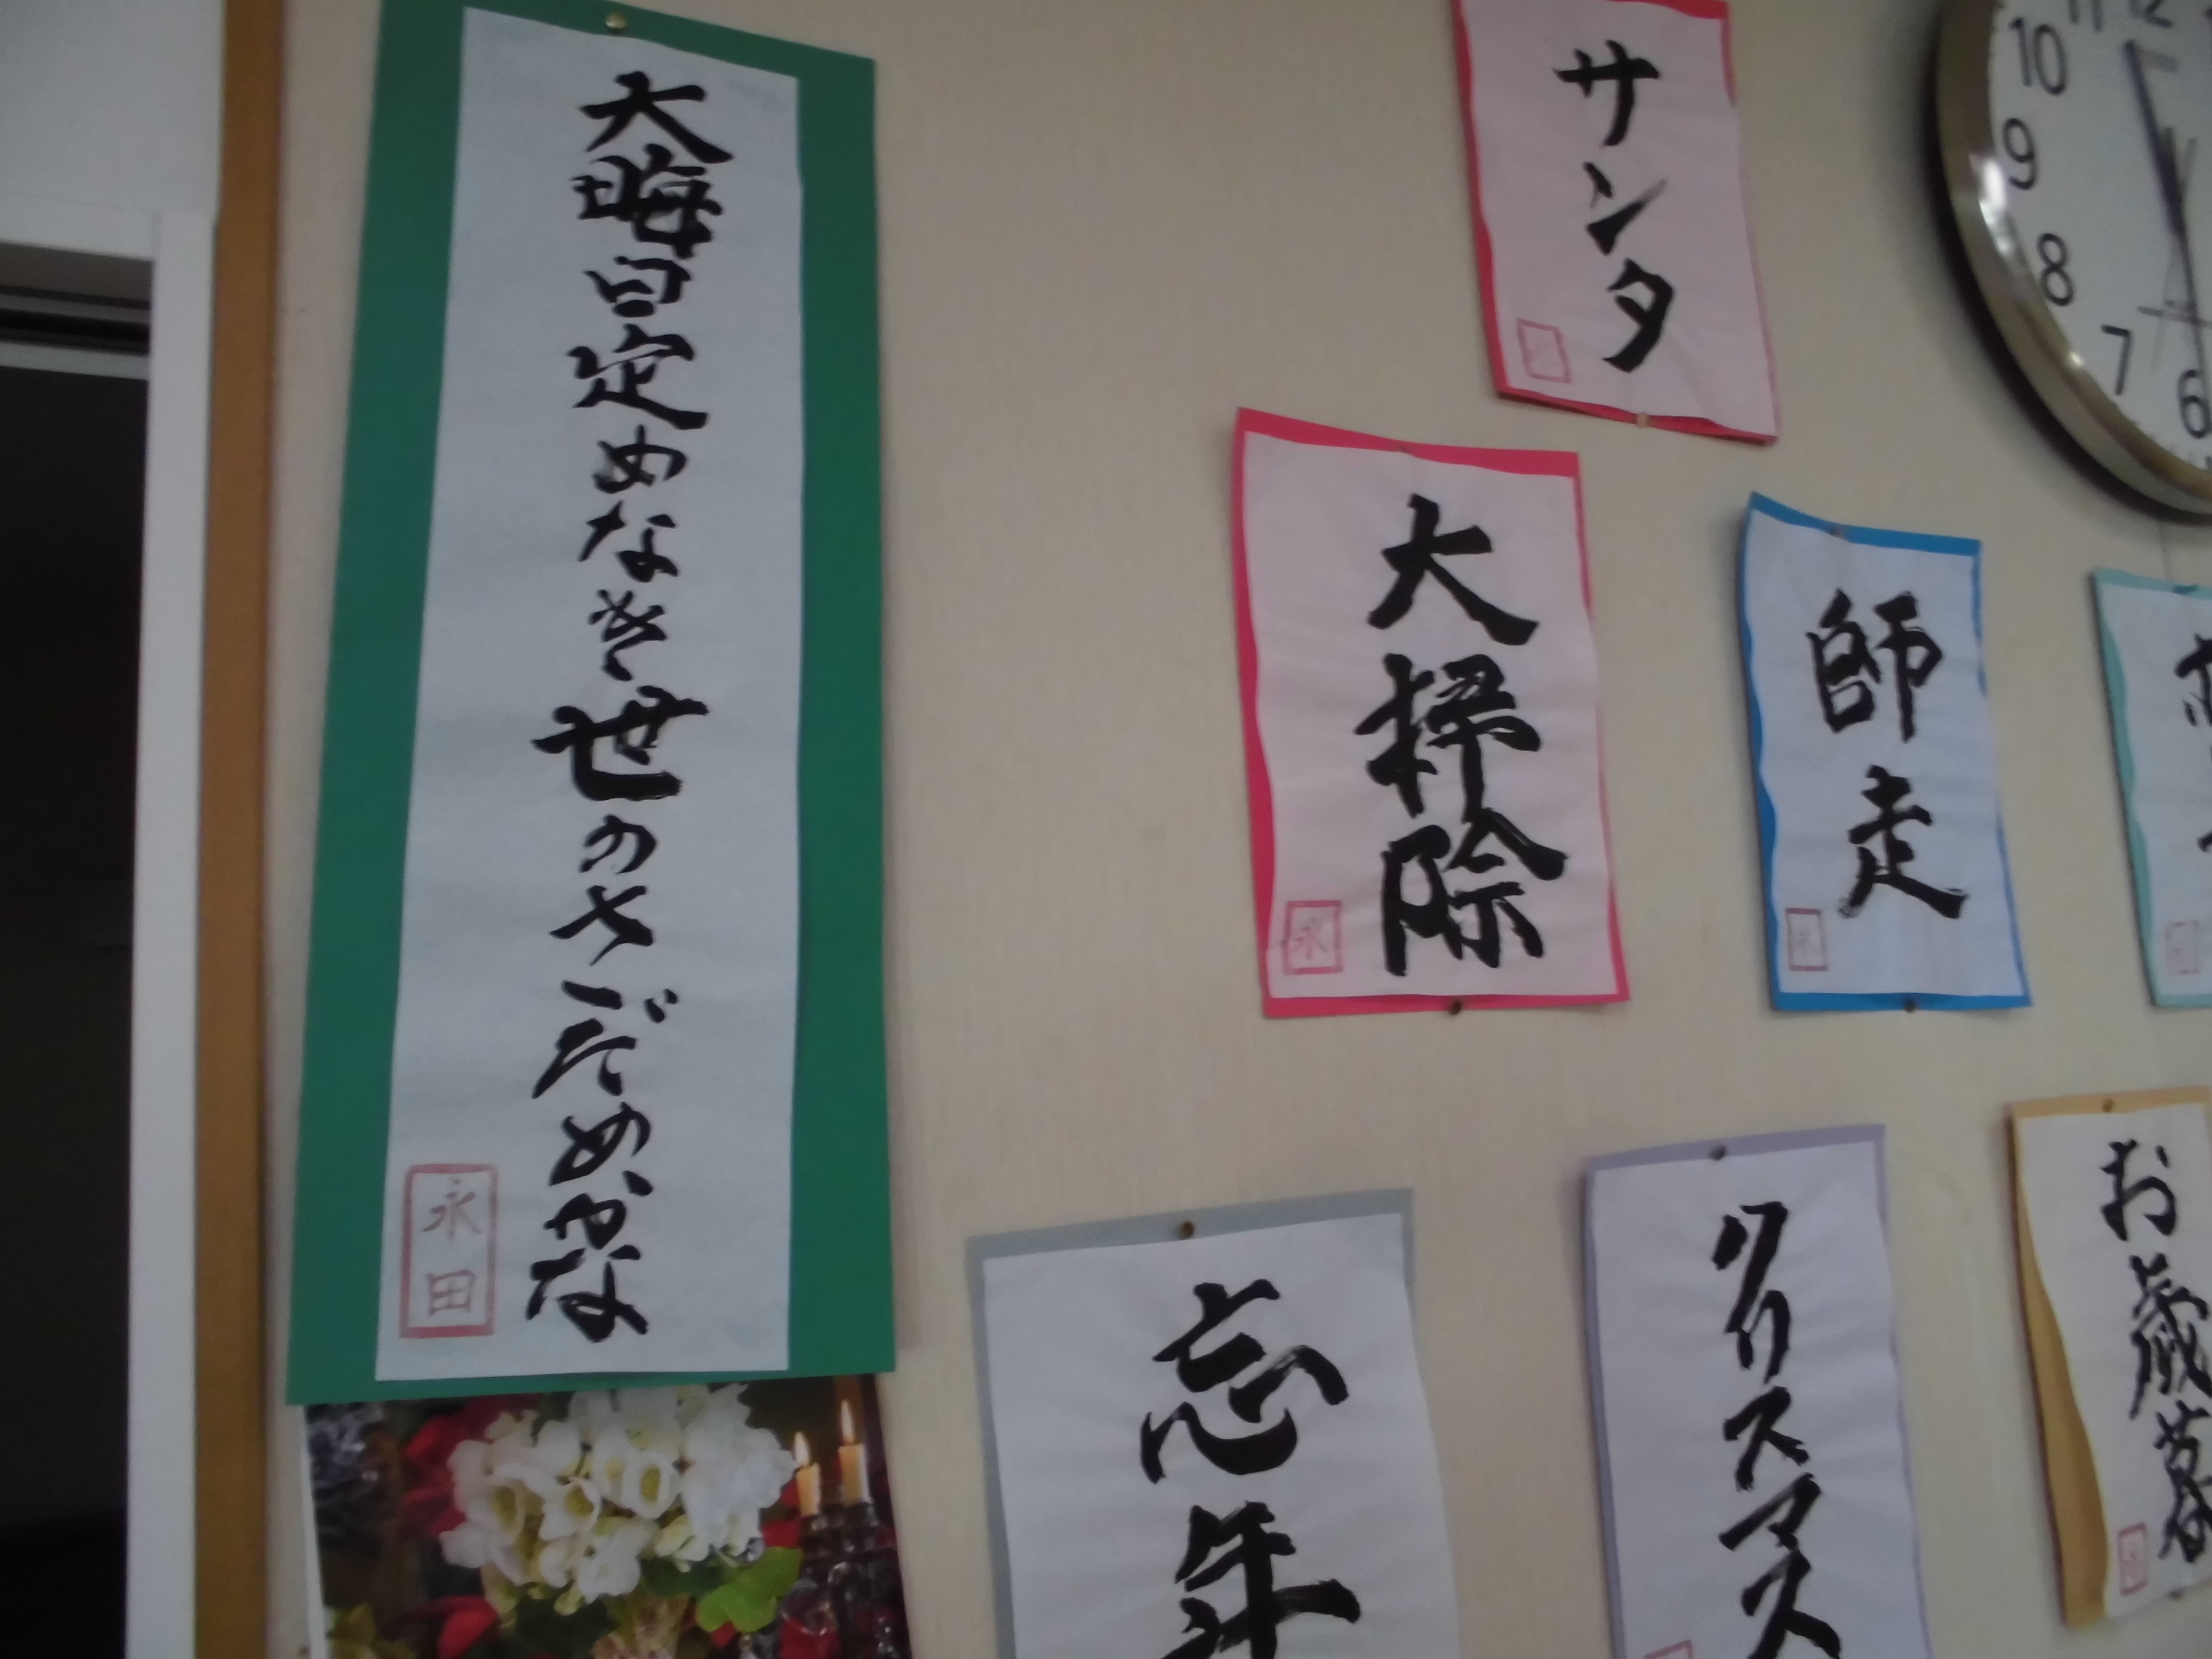 大晦日定めなき世のさだめかな
永田
サンタ
大掃除
永
師走
永
忘年
クリスマス
お歳暮
10
9
8
7
6